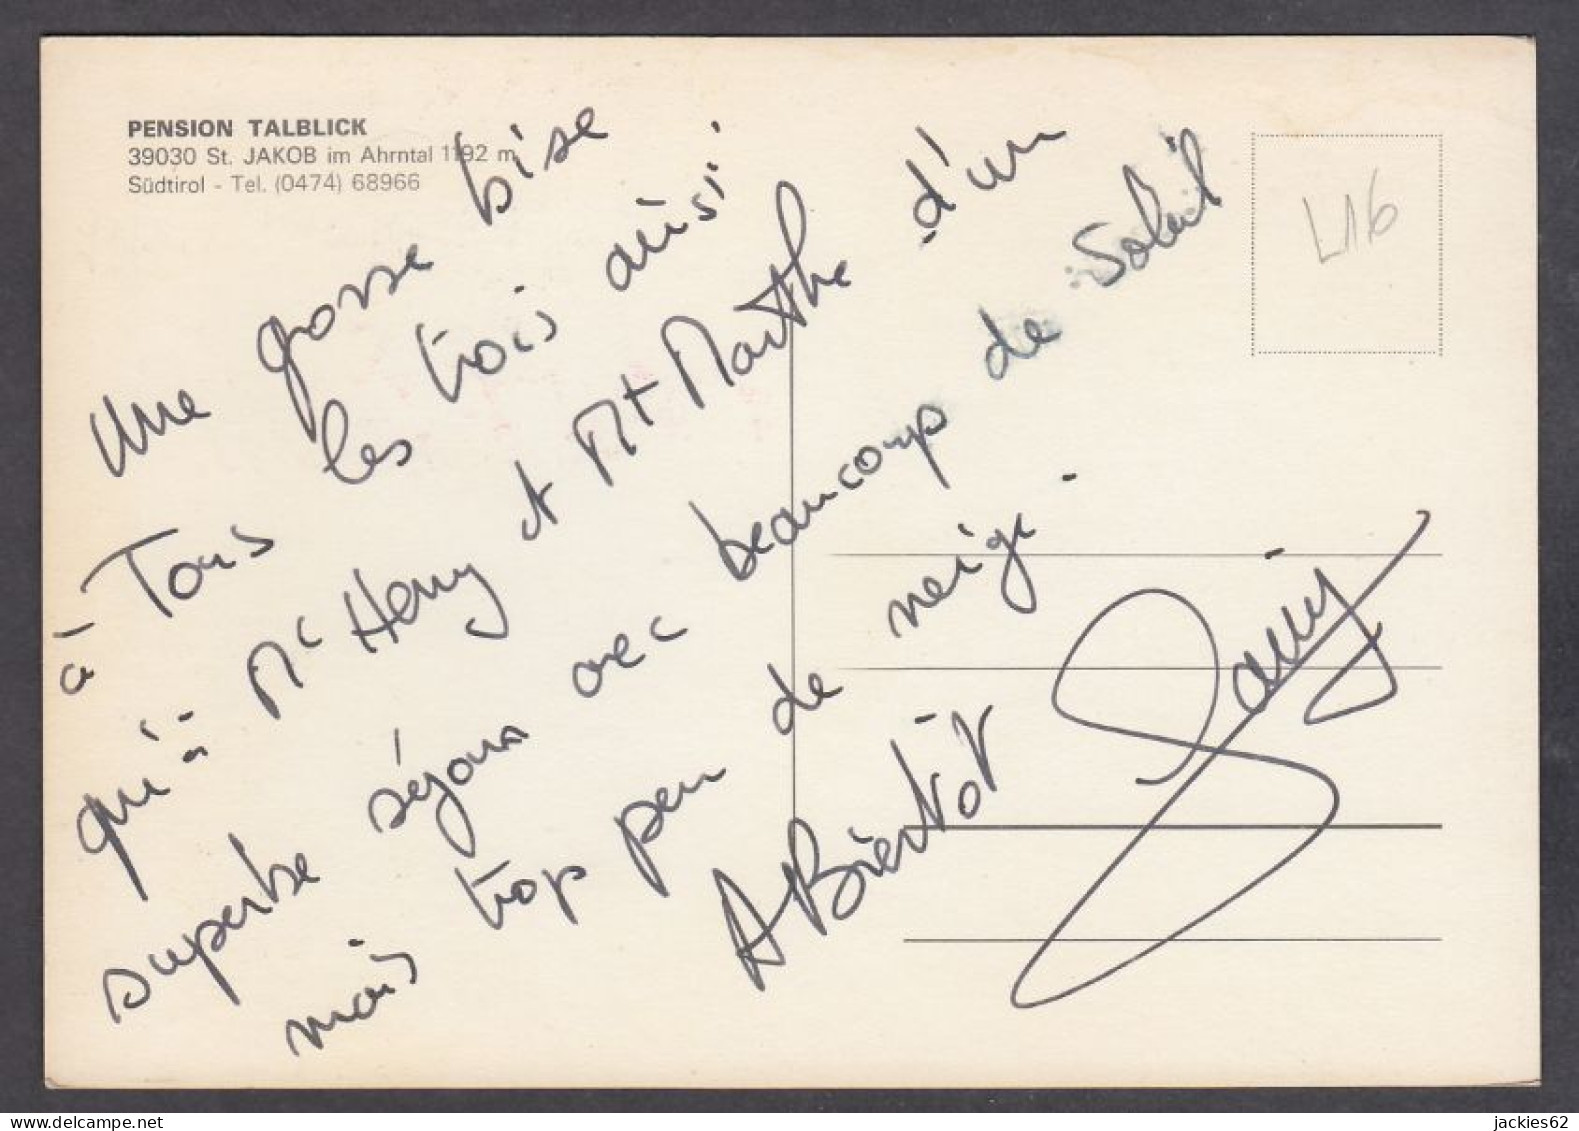 PENSION TALBLICK
39030 St. JAKOB im Ahrntal 1192 m
Südtirol - Tel. (0474) 68966
L16
Une grosse bise
à Tous les trois ainsi
qu'à Mc Henry et Mt Marthe d'un
superbe séjour avec beaucoup de Soleil
mais trop peu de neige.
A Bientôt
www.delcampe.net
jackies62